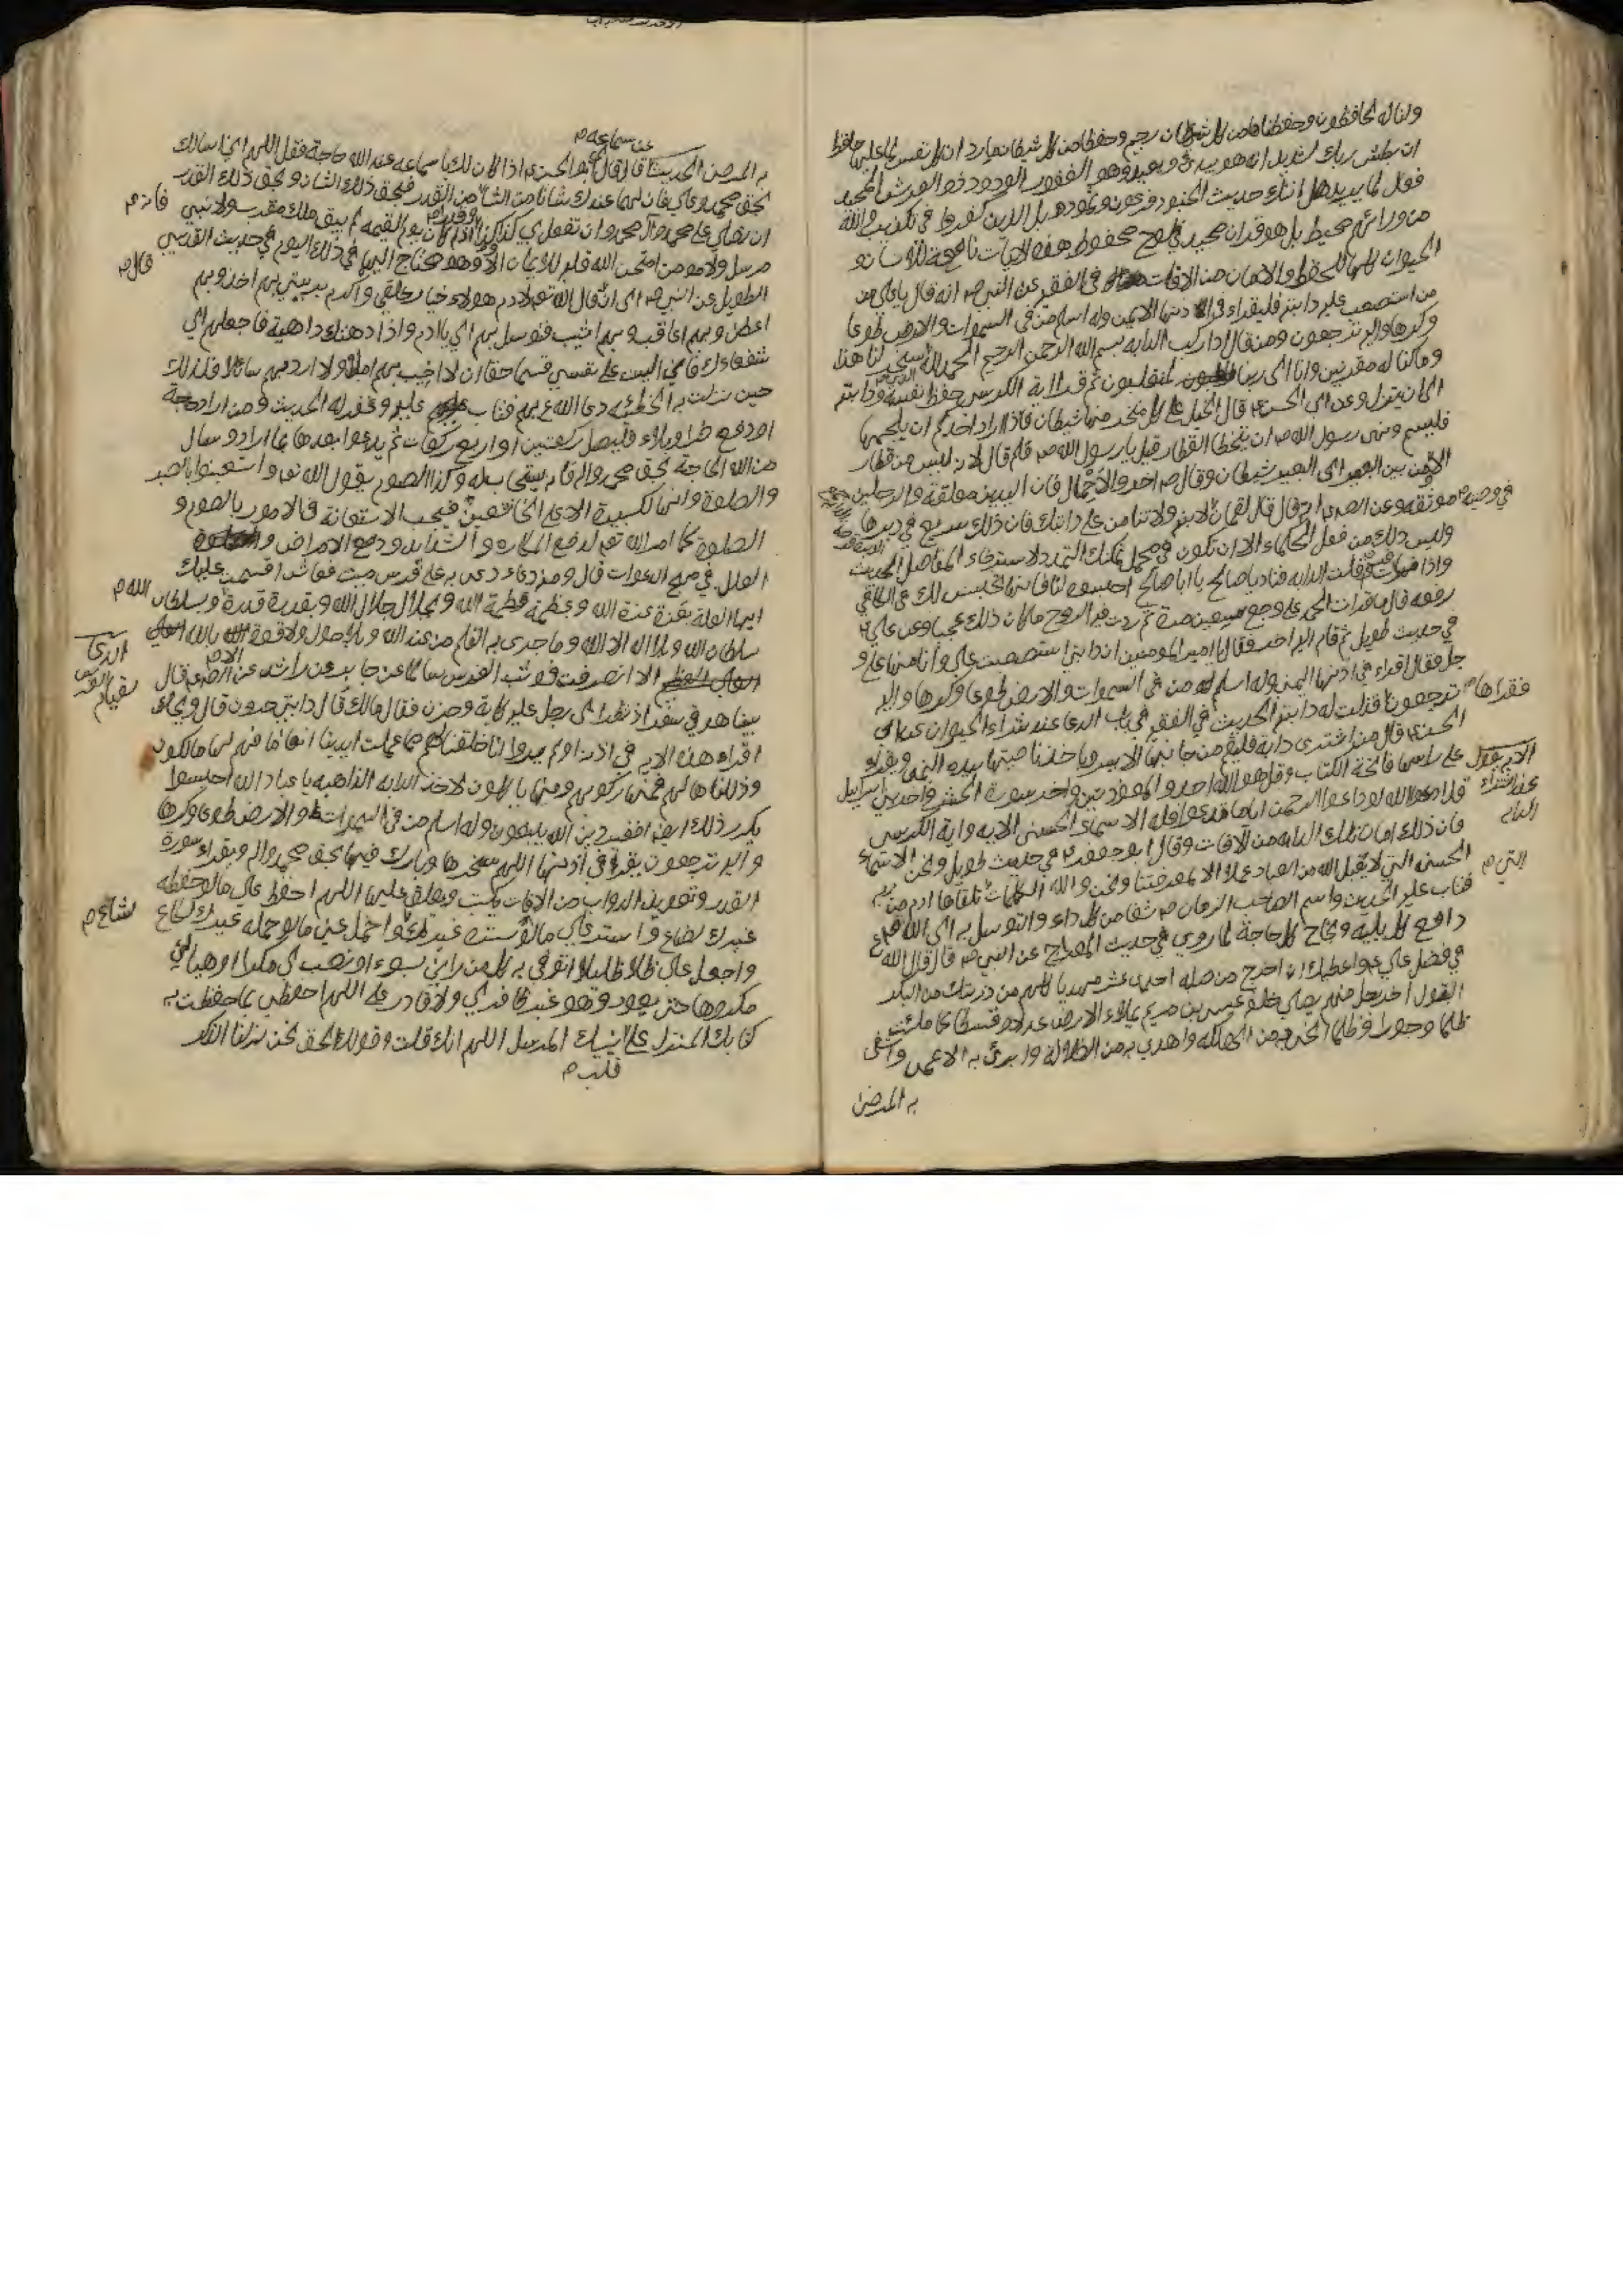 ولنا له لحافظون وحفظناها من كل شيطان رجيم وحفظا من كل شيطان مارد ان كل نفس لما عليها حافظ
ان بطش ربك لشديد انه هو يبدئ ويعيد وهو الغفور الودود ذو العرش المجيد
فعال لما يريد هل اتاك حديث الجنود فرعون وثمود بل الذين كفروا في تكذيب والله
من ورائهم محيط بل هو قران مجيد في لوح محفوظ هذه الايات نافعة للانسان و
الحيوان كلها للحفظ والامان من الافات في الفقيه عن النبي ص انه قال يا علي من
من استصعب عليه دابته فليقراء في اذنها الايمن وله اسلم من في السموات والارض طوعا
وكرها واليه ترجعون ومن قال اذا ركب الدابه بسم الله الرحمن الرحيم الحمد لله سخر لنا هذا
وما كنا له مقرنين وانا الى ربنا لمنقلبون ثم قرا اية الكرسي حفظ نفسه ودابته
الى ان ينزل وعن ابي الحسن ع قال الخيل على كل منخر منها شيطان فاذا اراد احدكم ان يلجمها
فليسم ونهى رسول الله ص ان يتخطا القطار قيل يا رسول الله ص فلم قال لانه ليس من قطار
الا وبين البعير الى البعير شيطان وقال ص اخروا الاحمال فان اليدين معلقة والرجلين
موثقه وعن الصادق ع قال قال لقمان لابنه ولا تنامن على دابتك فان ذلك سريع في دبرها
في وصيه
وليس ذلك من فعل الحكماء الا ان تكون في محمل يمكنك التمدد لاسترخاء المفاصل الحديث
واذا انفلتت الدابه فناد يا صالح يا ابا صالح احبسوه
رفعه قال ما قرات الحمد على وجع سبعين مرة ثم ردت فيه الروح ما كان ذلك عجبا وعن علي ع
في حديث طويل ثم قام اليه اخر فقال يا امير المومنين ان دابتي استصعبت علي وانا منها على و
جل فقال اقراء في اذنها اليمنى وله اسلم من في السموات والارض طوعا وكرها واليه
ترجعون فقراها فذلت له دابته الحديث في الفقيه في باب الدعا عند شراء الحيوان عن ابي
الحسن ع قال من اشترى دابة فليقم من جانبها الايسر وياخذ ناصيتها بيده اليمنى ويقراء
على راسها فاتحة الكتاب وقل هو الله احد والمعوذتين واخر سورة الحشر واخر بني اسرائيل
قل ادعوا الله او ادعوا الرحمن ايا ما تدعوا فله الاسماء الحسنى الايه واية الكرسي
عند شراء الدابه
فان ذلك امان تلك الدابه من الافات وقال ابو جعفر ع في حديث طويل ونحن الاسماء
الحسنى التي لا يقبل الله من العباد عملا الا بمعرفتنا ونحن والله الكلمات تلقاها ادم من ربه
فتاب عليه الحديث واسم الصاحب الزمان ص شفا من كل داء والتوسل به الى الله
دافع كل بلية ونجاح كل حاجة لما روي في حديث المعراج عن النبي ص قال قال الله
في فضل علي ع واعطيك ان اخرج من صلبه احد عشر مهديا كلهم من ذريتك من البكر
البتول اخر رجل منهم يصلي خلفه عيسى بن مريم يملاء الارض عدلا وقسطا كما ملئت
ظلما وجورا انجي به من الهلكه واهدي به من الضلالة وابرئ به الاعمى واشفى
به المريض
به المريض الحديث قال قال ابو الحسن ع اذا كان لك يا سماعه عند الله حاجة فقل اللهم اني اسالك
عن سماعه
بحق محمد وعلي فان لهما عندك شانا من الشان من القدر فبحق ذلك الشان وبحق ذلك القدر
ان تصلي على محمد وآل محمد وان تفعل بي كذا وكذا فانه اذا كان يوم القيمه لم يبق ملك مقرب ولا نبي
مرسل ولا مومن امتحن الله قلبه للايمان الا وهو محتاج اليهما في ذلك اليوم في حديث القدسي
الطويل عن النبي ص الى ان قال الله تع لادم هولاء خيار خلقي واكرم بريتي بهم اخذ وبهم
اعطي وبهم اعاقب وبهم اثيب فتوسل بهم الي يا ادم واذا دهتك داهية فاجعلهم الي
شفعاءك فاني اليت على نفسي قسما حقا ان لا اخيب بهم املا ولا ارد بهم سائلا فلذلك
حين نزلت به الخطيئه دعا الله ع بهم فتاب عليه وغفر له الحديث ومن اراد حاجة
او دفع ضر او بلاء فليصل ركعتين او اربع ركعات ثم يدعوا بعدها بما اراد وسال
من الله الحاجة بحق محمد واله فانه يستجاب له وكذا الصوم يقول الله تع واستعينوا بالصبر
والصلوة وانها لكبيرة الا على الخاشعين فيجب الاستعانة في الامور بالصوم و
الصلوة كما امر الله تع لدفع المكاره والشدايد ودفع الامراض و
العلل في مهج الدعوات قال ومن دعاء دعي به على فرس ميت فعاش اقسمت عليك
ايها العلة بعزة عزة الله وبعظمة عظمة الله وبجلال جلال الله وبقدرة قدرة الله وبسلطان
سلطان الله وبلا اله الا الله وما جرى به القلم من عند الله وبلا حول ولا قوة الا بالله
الا انصرفت فوثب الفرس سالما عن جابر عن قال
بينا هو في سفر اذ نظر الى رجل عليه كابة وحزن فقال مالك قال دابتي حرون قال ويحك
اقراء هذه الايه في اذنه اولم يروا انا خلقنا لهم مما عملت ايدينا انعاما فهم لها مالكون
وذللناها لهم فمنها ركوبهم ومنها ياكلون لاخذ الدابه الذاهبه يا عباد الله احبسوا
يكرر ذلك ايضا افغير دين الله يبغون وله اسلم من في السموات والارض طوعا وكرها
واليه ترجعون يقراء في اذنها اللهم سخرها وبارك فيها بحق محمد واله ويقراء سورة
القدر وتعويذ الدواب من الافات يكتب ويعلق عليها اللهم احفظ علي ما لو حفظه
غيرك لضاع واستر علي ما لو ستره غيرك لشاع واحمل عني ما لو حمله غيرك لكاع
واجعل علي ظلا ظليلا اتوقى به كل من رامني بسوء او نصب لي مكرا او هيا لي
مكروها حتى يعود وهو غير ظافر بي ولا قادر علي اللهم احفظني بما حفظت به
كتابك المنزل على قلب نبيك المرسل اللهم انك قلت وقولك الحق نحن نزلنا الذكر